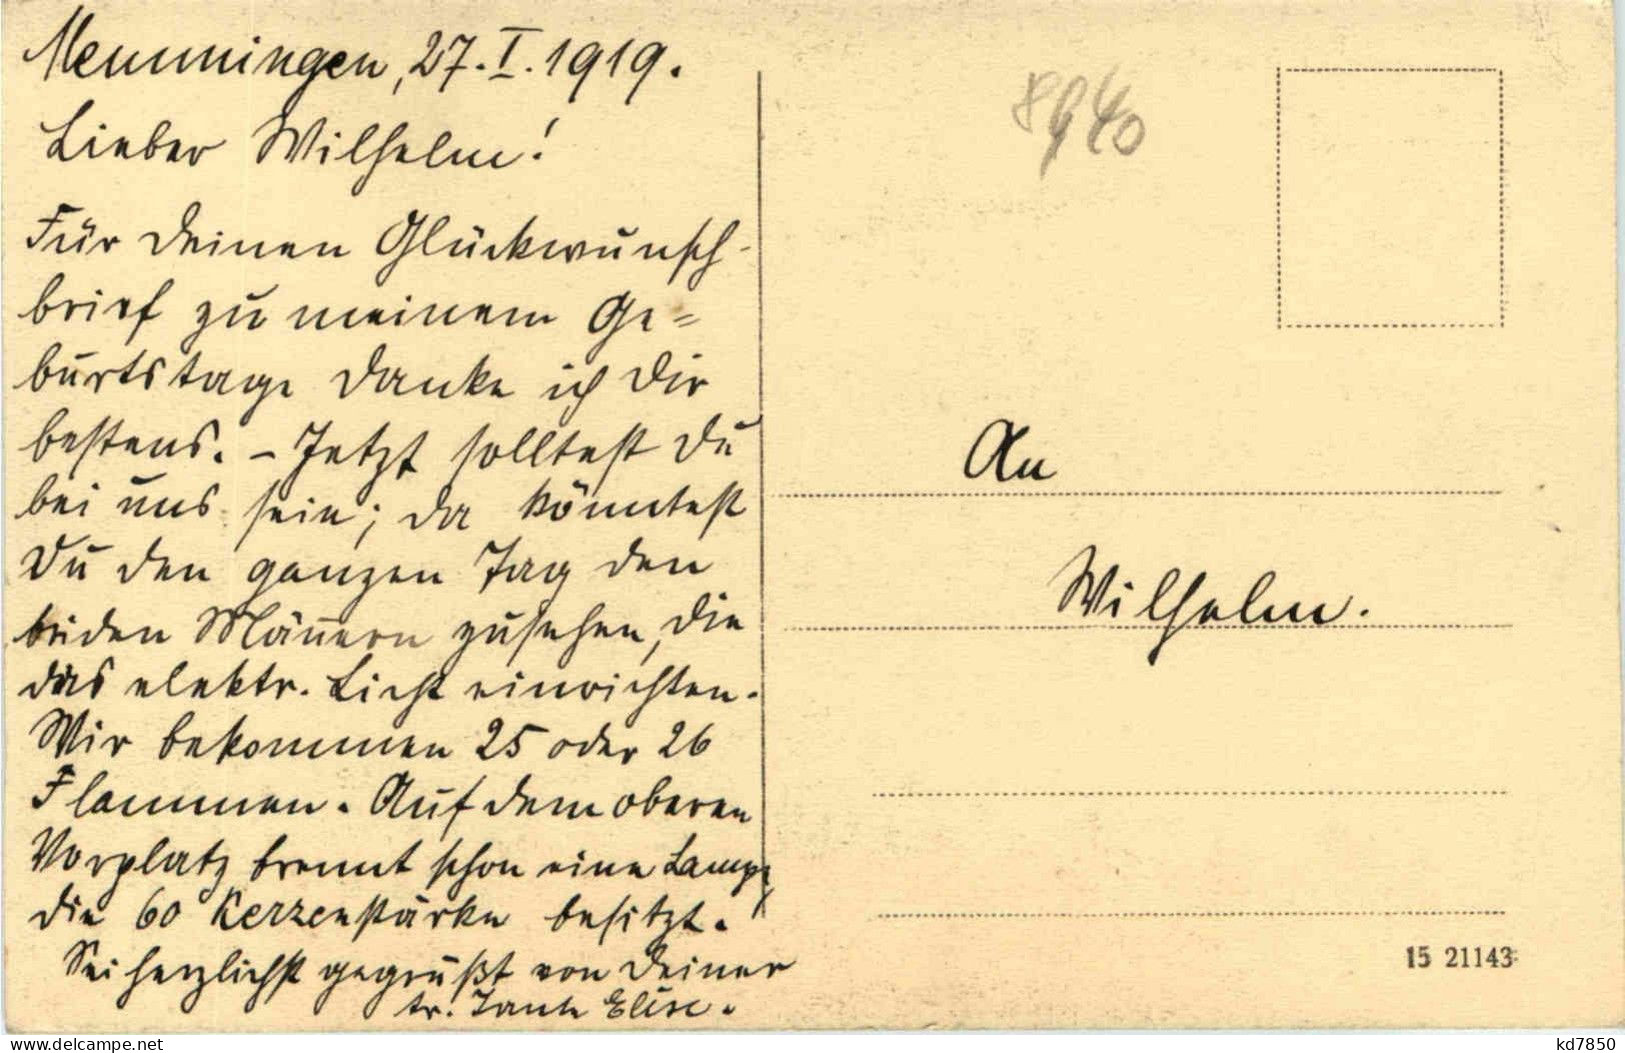 Memmingen, 27. I. 1919.
Lieber Wilhelm!
Für Deinen Glückwunsch-
brief zu meinem Ge-
burtstage danke ich Dir
bestens. – Jetzt solltest Du
bei uns sein; da könntest
Du den ganzen Tag den
beiden Männern zusehen, die
das elektr. Licht einrichten.
Wir bekommen 25 oder 26
Flammen. Auf dem oberen
Vorplatz brennt schon eine Lampe,
die 60 Kerzenstärke besitzt.
Sei herzlichst gegrüßt von Deiner
tr. Tante Elise.
8940
An
Wilhelm.
15 21143
www.delcampe.net
kd7850